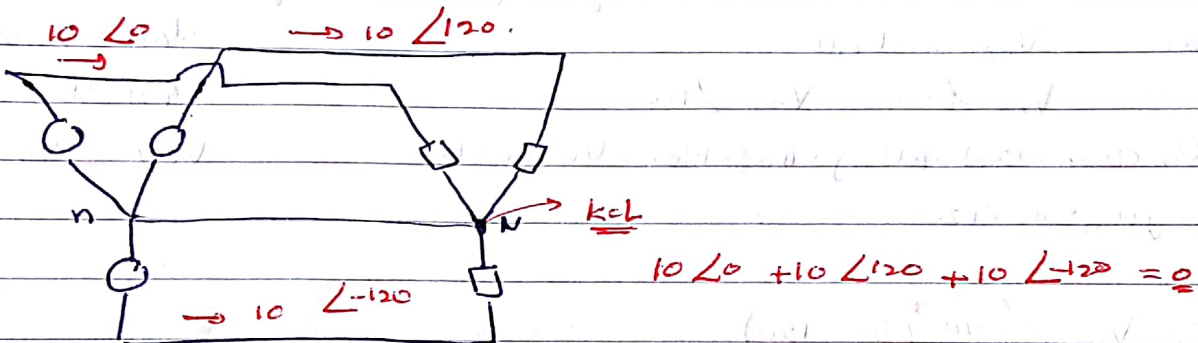 10 ∠0 → 10 ∠120.
→
n
N
KCL
10 ∠0 + 10 ∠120 + 10 ∠-120 = 0
→ 10 ∠-120